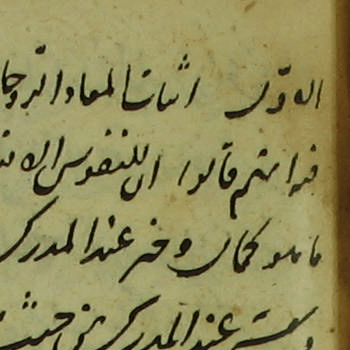 الاول اثبات المعاد الروحا
فانهم قالوا ان للنفوس الا
ما هو كمال و خير عند المدرك
عند المدرك من حيث